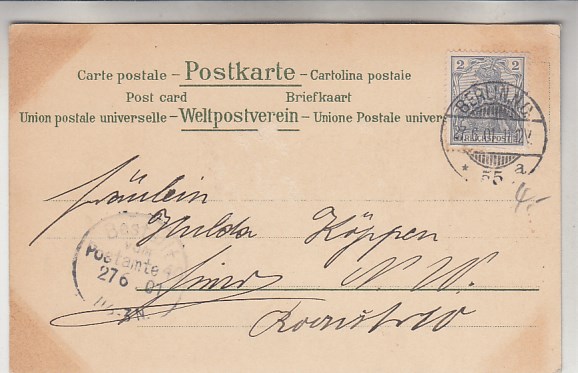 Carte postale – Postkarte – Cartolina postale
Post card Briefkaart
Union postale universelle – Weltpostverein – Unione Postale univer
2 2
BERLIN, N.
27.6.01. 11-12V
* 55 a
Fräulein
Hulda Köppen
hier N. W.
Bestellt
vom
Postamte
27 6 01